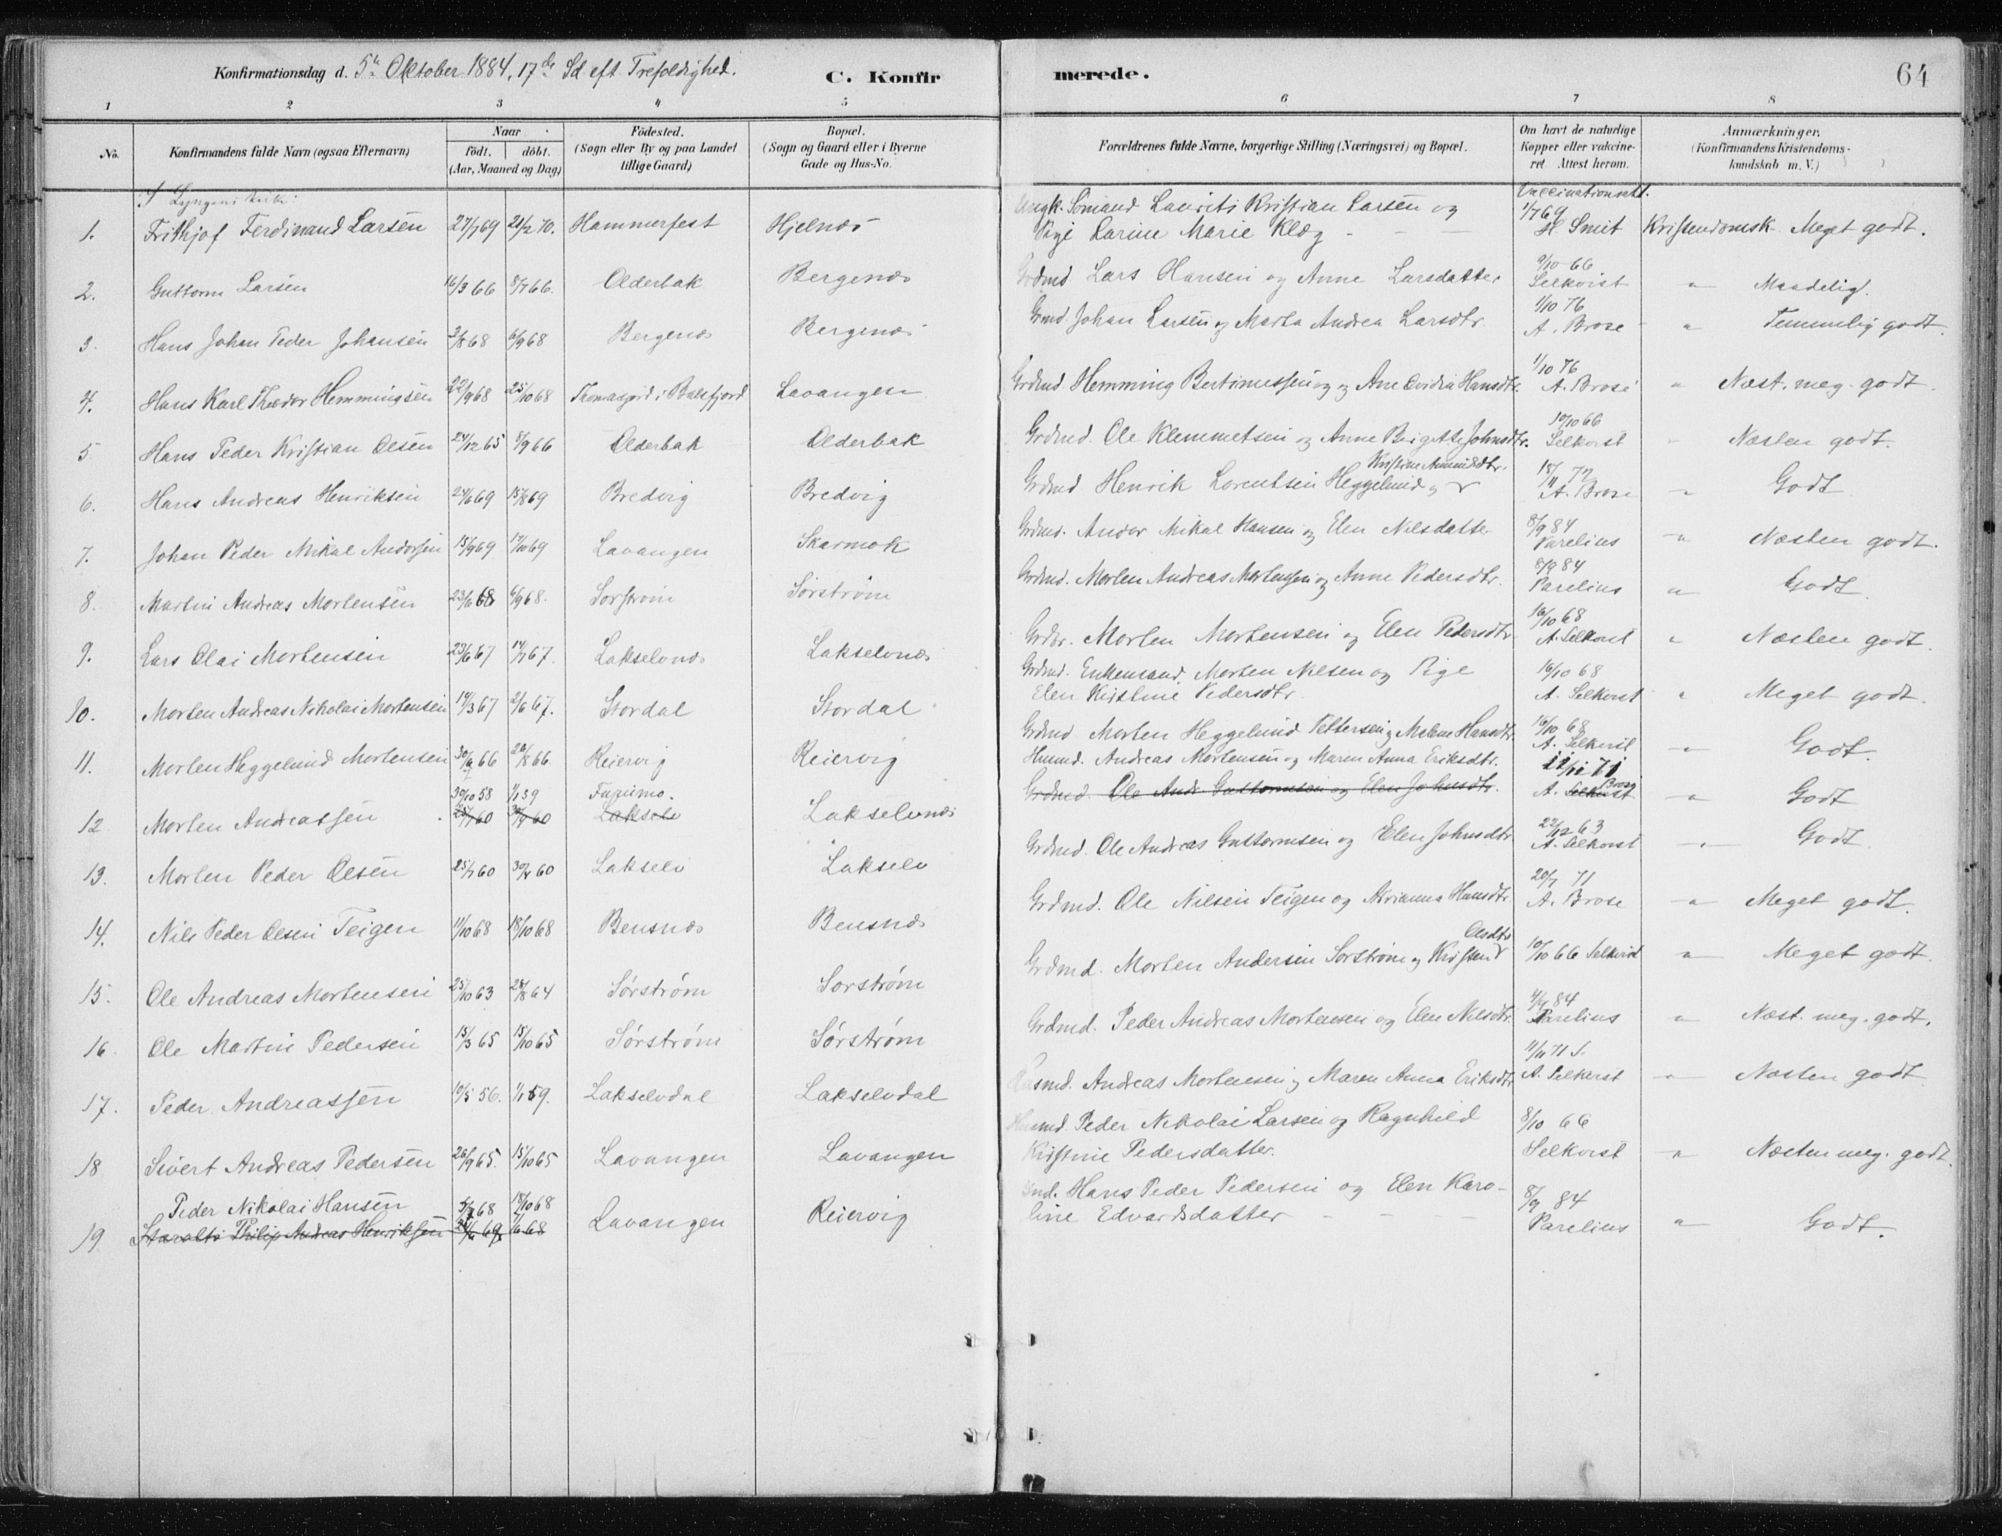 Konfirmationsdag d. 5te Oktober 1884, 17de Sd eft. Trefoldighed. C. Konfirmerede. 64
1 2 3 4 5 6 7 8
No. Konfirmandens fulde Navn (ogsaa Efternavn) Naar født. døbt. (Aar, Maaned og Dag) Fødested. (Sogn eller By og paa Landet tillige Gaard) Bopæl. (Sogn og Gaard eller i Byerne Gade og Hus-No. Forældrenes fulde Navne, borgerlige Stilling (Næringsvei) og Bopæl. Om havt de naturlige Kopper eller vakcineret. Attest herom. Anmærkninger. (Konfirmandens Kristendomskundskab m. V.)
I Lyngens Kirke: Vaccinationsatt.
1. Frithjof Ferdinand Larsen 27/1 69 21/2 70. Hammerfest Hjelnæs Ungk. Sømand Laurits Kristian Larsen og Pige Larine Marie Klæg 1/7 69 H Smit Kristendomsk. Meget godt.
2. Guttorm Larsen 16/3 66 8/7 66. Olderbak Bergenæs Grdmd. Lars Hansen og Anne Larsdatter 9/10 66 Selkvist " Maadelig.
3. Hans Johan Peder Johansen 2/8 68 6/9 68 Bergenæs Bergenæs Grmd. Johan Larsen og Marta Andrea Larsdtr. 1/10 76 A. Brose " Temmelig godt
4. Hans Karl Theodor Hemmingsen 22/9 68 25/10 68 Thomasjord i Balsfjord Lavangen Grdmd. Hemming Bertinussen og Ane Ovidia Hansdtr. 1/10 76 A. Brose " Næst. meg. godt.
5. Hans Peder Kristian Olsen 24/12 65 8/9 66 Olderbak Olderbak Grdmd. Ole Klemmetsen og Anne Birgitte Johnsdtr. 10/10 66 Selkvist " Næsten godt.
6. Hans Andreas Henriksen 24/6 69 15/8 69 Bredvig Bredvig Grdmd Henrik Lorentsen Heggelund og Kristine Amundsdtr. 18/11 72 A. Brose " Godt
7. Johan Peder Mikal Andorsen 15/9 69 17/10 69 Lavangen Skarmok Grdmd. Andor Mikal Hansen og Elen Nilsdatter 8/9 84 Parelius " Næsten godt.
8. Martin Andreas Mortensen 23/6 68 6/9 68. Sørstrøm Sørstrøm Grdmd. Morten Andreas Mortensen og Anne Pedersdtr. 8/9 84 Parelius " Godt
9. Lars Olai Mortensen 23/6 67 14/7 67. Lakselvnæs Lakselvnæs Grdbr. Morten Mortensen og Elen Pedersdtr. 16/10 68 A. Selkvist " Næsten godt.
10. Morten Andreas Nikolai Mortensen 19/3 67 2/6 67. Stordal Stordal Grdmd. Enkemand Morten Nilsen og Pige Elen Kristine Pedersdtr. 16/10 68 A. Selkvist " Meget godt.
11. Morten Heggelund Mortensen 30/6 66 20/8 66. Reiervig Reiervig Grdmd Morten Heggelund Pettersen og Malene Hansdtr. 16/10 68 A. Selkvist " Godt.
12. Morten Andreassen 30/10 58 1/1 59 25/7 60 30/8 60 Furumo. Lakselv Lakselvnæs Husmd. Andreas Mortensen og Maren Anna Eriksdtr. Grdmd. Ole Andr. Guttormsen og Elen Johnsdtr. 11/12 71 A. Selkvist Brose " Godt
13. Morten Peder Olsen 25/7 60 30/8 60 Lakselv Lakselv Grdmd. Ole Andreas Guttormsen og Elen Johnsdtr. 22/12 63 A. Selkvist " Godt
14. Nils Peder Olsen Teigen 11/10 68 18/10 68 Bensnæs Bensnæs Grdmd. Ole Nilsen Teigen og Marianna Hansdtr. 20/7 71 A. Brose " Meget godt.
15. Ole Andreas Mortensen 25/10 63 28/8 64 Sørstrøm Sørstrøm Grdmd. Morten Andersen Sørstrøm og Kristen Olsdtr 10/10 66 Selkvist " Meget godt
16. Ole Martin Pedersen 15/3 65 15/10 65 Sørstrøm Sørstrøm Grdmd. Peder Andreas Mortensen og Elen Nilsdtr. 4/9 84 Parelius " Næst. meg. godt.
17. Peder Andreassen 10/5 56. 1/1 59. Lakselvdal Lakselvdal Husmd. Andreas Mortensen og Maren Anna Eriksdtr 11/11 71 A. Selkvist " Næsten godt
18 Sivert Andreas Pedersen 26/9 65. 15/10 65 Lavangen Lavangen Husmd. Peder Nikolai Larsen og Ragnhild Kristine Pedersdatter. 8/10 66 Selkvist " Næsten meg. godt.
19. Peder Nikolai Hansen Philip Andreas Henriksen 68 18/10 68 Lavangen Reiervig Hans Peder Pedersen og Elen Karoline Edvardsdatter 8/9 84 Parelius " Godt.